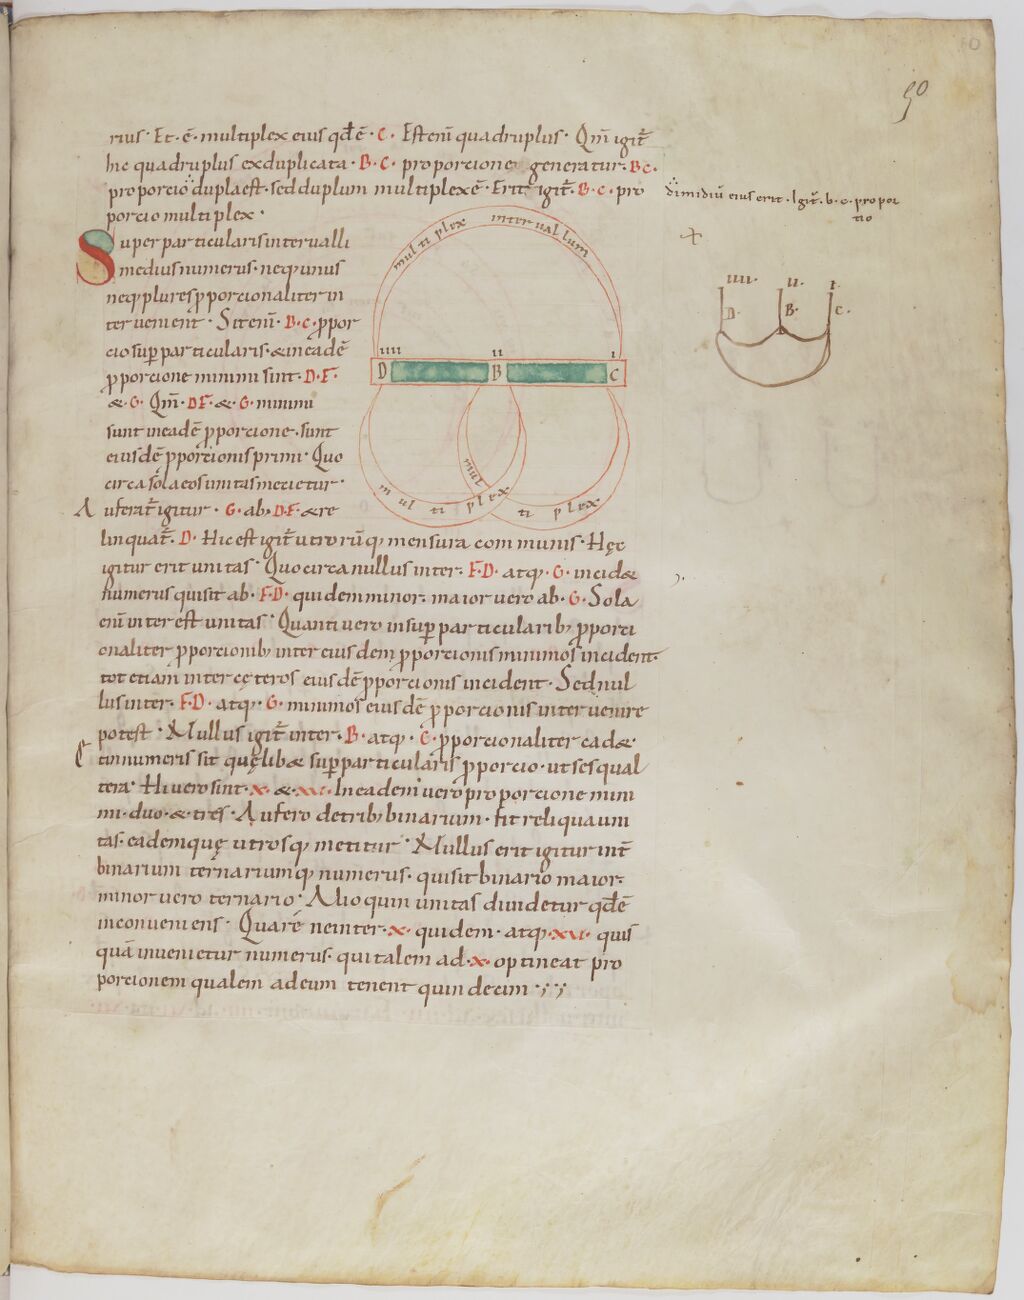 50
rius· Et·ē· multiplex eius qd̄ ē· C· Est enī quadruplus· Qm̄ igit̄
hic quadruplus ex duplicata· B·C· proporcione generatur· B·C·
proporcio dupla est· sed duplum multiplex ē· Erit igit̄· B·C· pro
porcio multiplex·
dimidiū eius erit· Igit̄· b·c· propor
tio
Super particularis intervalli
medius numerus· neq; unus
neq; plures p̄porcionaliter in
tervenient· Sit enī· B·C· p̄por
cio sup̄particularis· & in eadē
p̄porcione minimi sint· D·F·
&·G· Qm̄· DF·&·G· minimi
sunt in eadē p̄porcione· sunt
eiusdē p̄porcionis primi· Quo
circa sola eos unitas metietur·
Auferat̄ igitur· G· ab· D·F· & re
linquat̄· D· Hic est igit̄ utrorūq; mensura communis· Hęc
igitur erit unitas· Quocirca nullus inter· F·D· atq;· G· incid&
numerus qui sit ab· F·D· quidem minor· maior vero ab· G· Sola
enī inter est unitas· Quanti vero in sup̄particularib; p̄porci
onaliter p̄porcionib; inter eiusdem p̄porcionis minimos incident·
tot etiam inter cęteros eiusdē p̄porcionis incident· Sed nul
lus inter· F·D· atq;· G· minimos eiusdē p̄porcionis intervenire
potest· Nullus igit̄ inter· B· atq;· C· p̄porcionaliter cad&·
Et in numeris sit quęlib& sup̄particularis p̄porcio· ut sesqual
tera· Hi vero sint· X· & XV· In eadem vero proporcione mini
mi· duo· & tres· Aufero de trib; binarium· fit reliqua uni
tas· eademquę utrosq; metitur· Nullus erit igitur int̄
binarium ternariumq; numerus· qui sit binario maior·
minor vero ternario· Alioquin unitas dividetur qd̄ ē
inconveniens· Quare ne inter· X· quidem· atq;· XV· quis
quā invenietur numerus· qui talem ad· X· optineat pro
porcionem qualem ad eum tenent quindecim·
multiplex intervallum
IIII II I
D B C
multiplex
multiplex
IIII· II· I·
D· B· C·